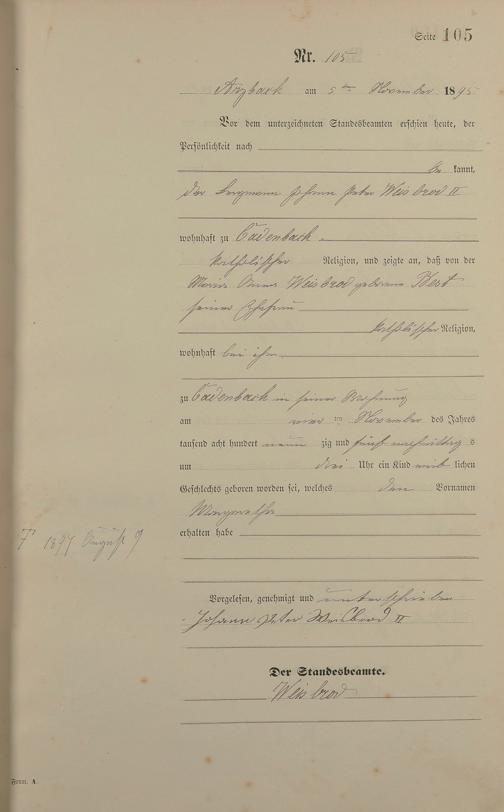 Seite 105
Nr. 105
Arzbach am 5ten November 1895
Vor dem unterzeichneten Standesbeamten erschien heute, der
Persönlichkeit nach
be kannt,
der Bergmann Johann Peter Weisbrod II
wohnhaft zu Cadenbach
katholischer Religion, und zeigte an, daß von der
Maria Anna Weisbrod geborene Best
seiner Ehefrau
katholischer Religion,
wohnhaft bei ihm
zu Cadenbach in seiner Wohnung
am vier ten November des Jahres
tausend acht hundert neun zig und fünf nachmittag s
um drei Uhr ein Kind weib lichen
Geschlechts geboren worden sei, welches den Vornamen
erhalten habe
† 1897 August 9
Vorgelesen, genehmigt und unterschrieben
Johann Peter Weisbrod II
Der Standesbeamte.
Weisbrod
Form. A.